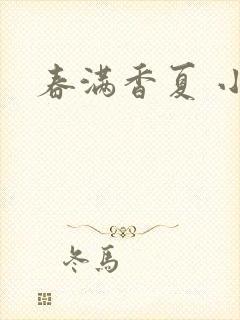 春满香夏 小
冬馬